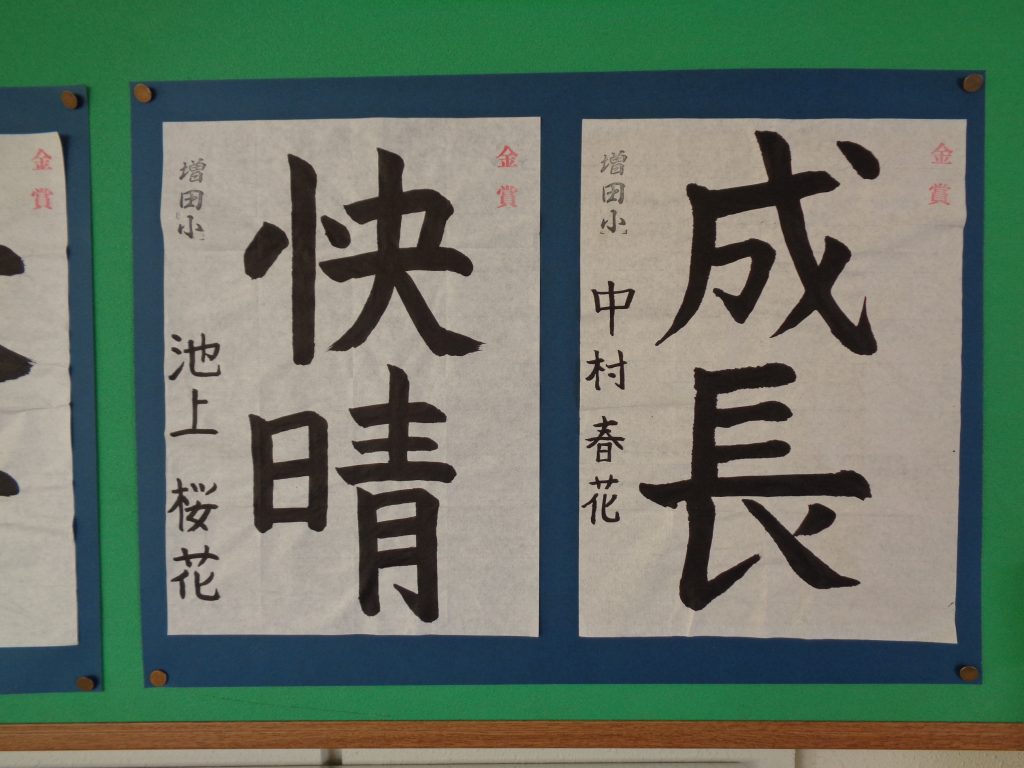 金賞
成長
増田小
中村 春花
金賞
快晴
増田小
池上 桜花
金賞